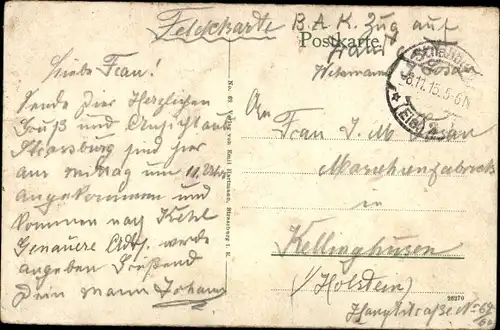 Feldkarte B. A. K. Zug auf
Postkarte
Liebe Frau!
Sende Dier Herzlichen
Gruß und Ansicht aus
Strassburg sind hier
am mittag um 11 Uhr
angekommen und
kommen nach Kehl
Genauere Adr. werde
angeben Grüßend
Dein mann Johann
No. 62 Verlag von Emil Hartmann, Strassburg i. E.
8.11.15. 5-6N
An
Frau J. M.
in
Kellinghusen
(Holstein)
Hauptstraße No 62
26270